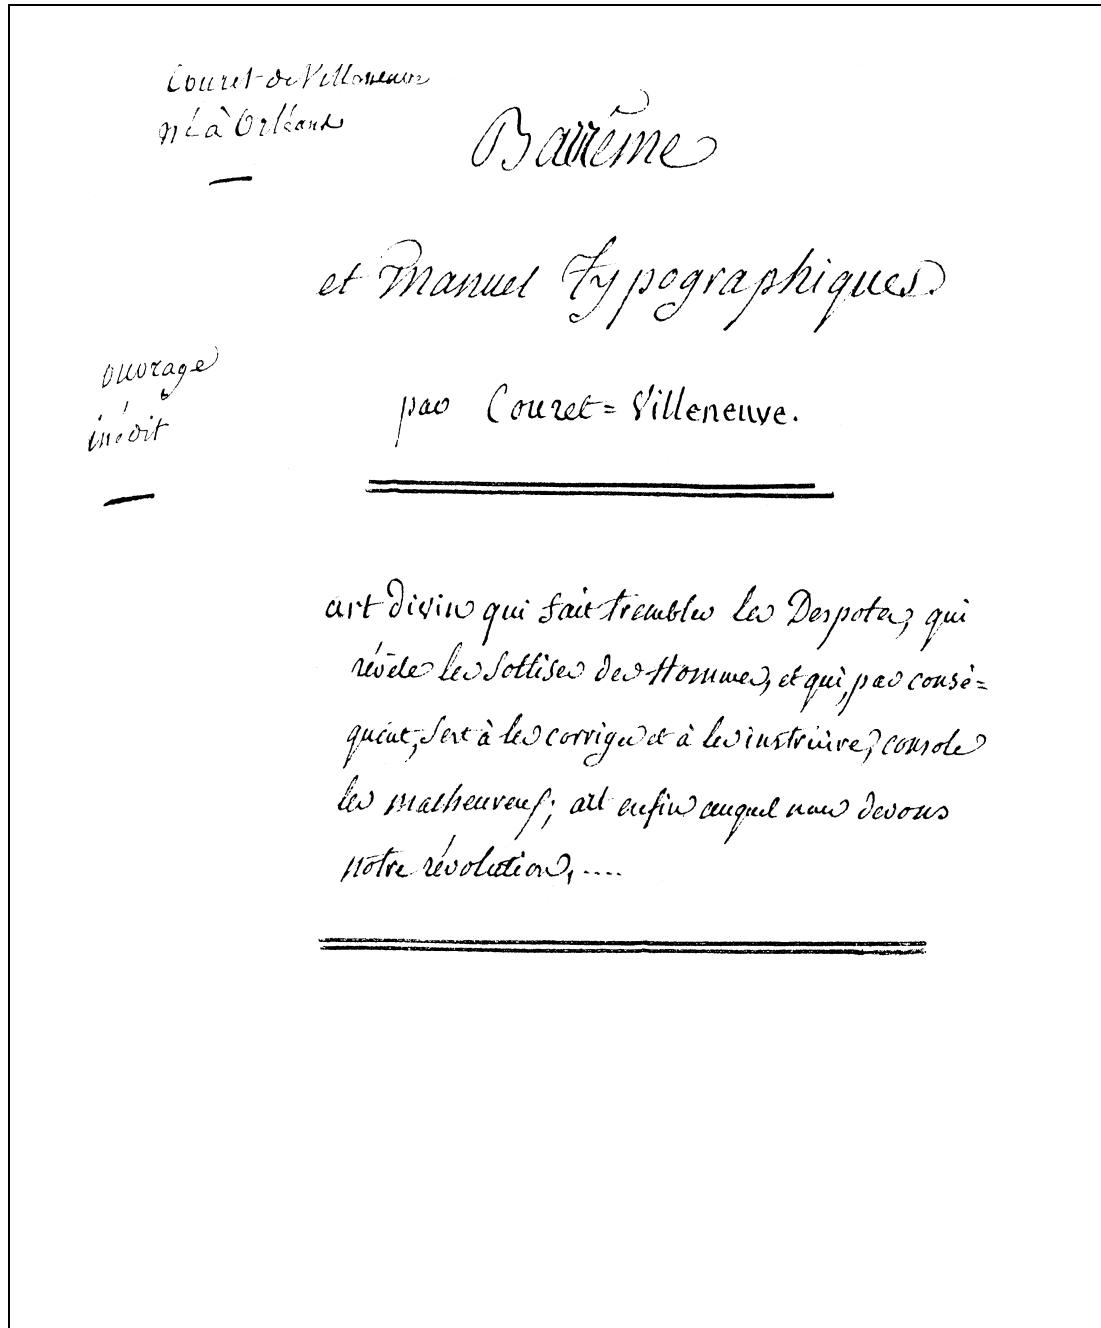 Couret de Villeneuve
né à Orléans
Barrême
et Manuel Typographiques
ouvrage
inédit
par Couret=Villeneuve.
art divin qui fait trembler les Despotes, qui
révèle les sottises des Hommes, et qui, par consé=
quent, sert à les corriger et à les instruire, console
les malheureux; art enfin auquel nous devons
notre révolution, ....